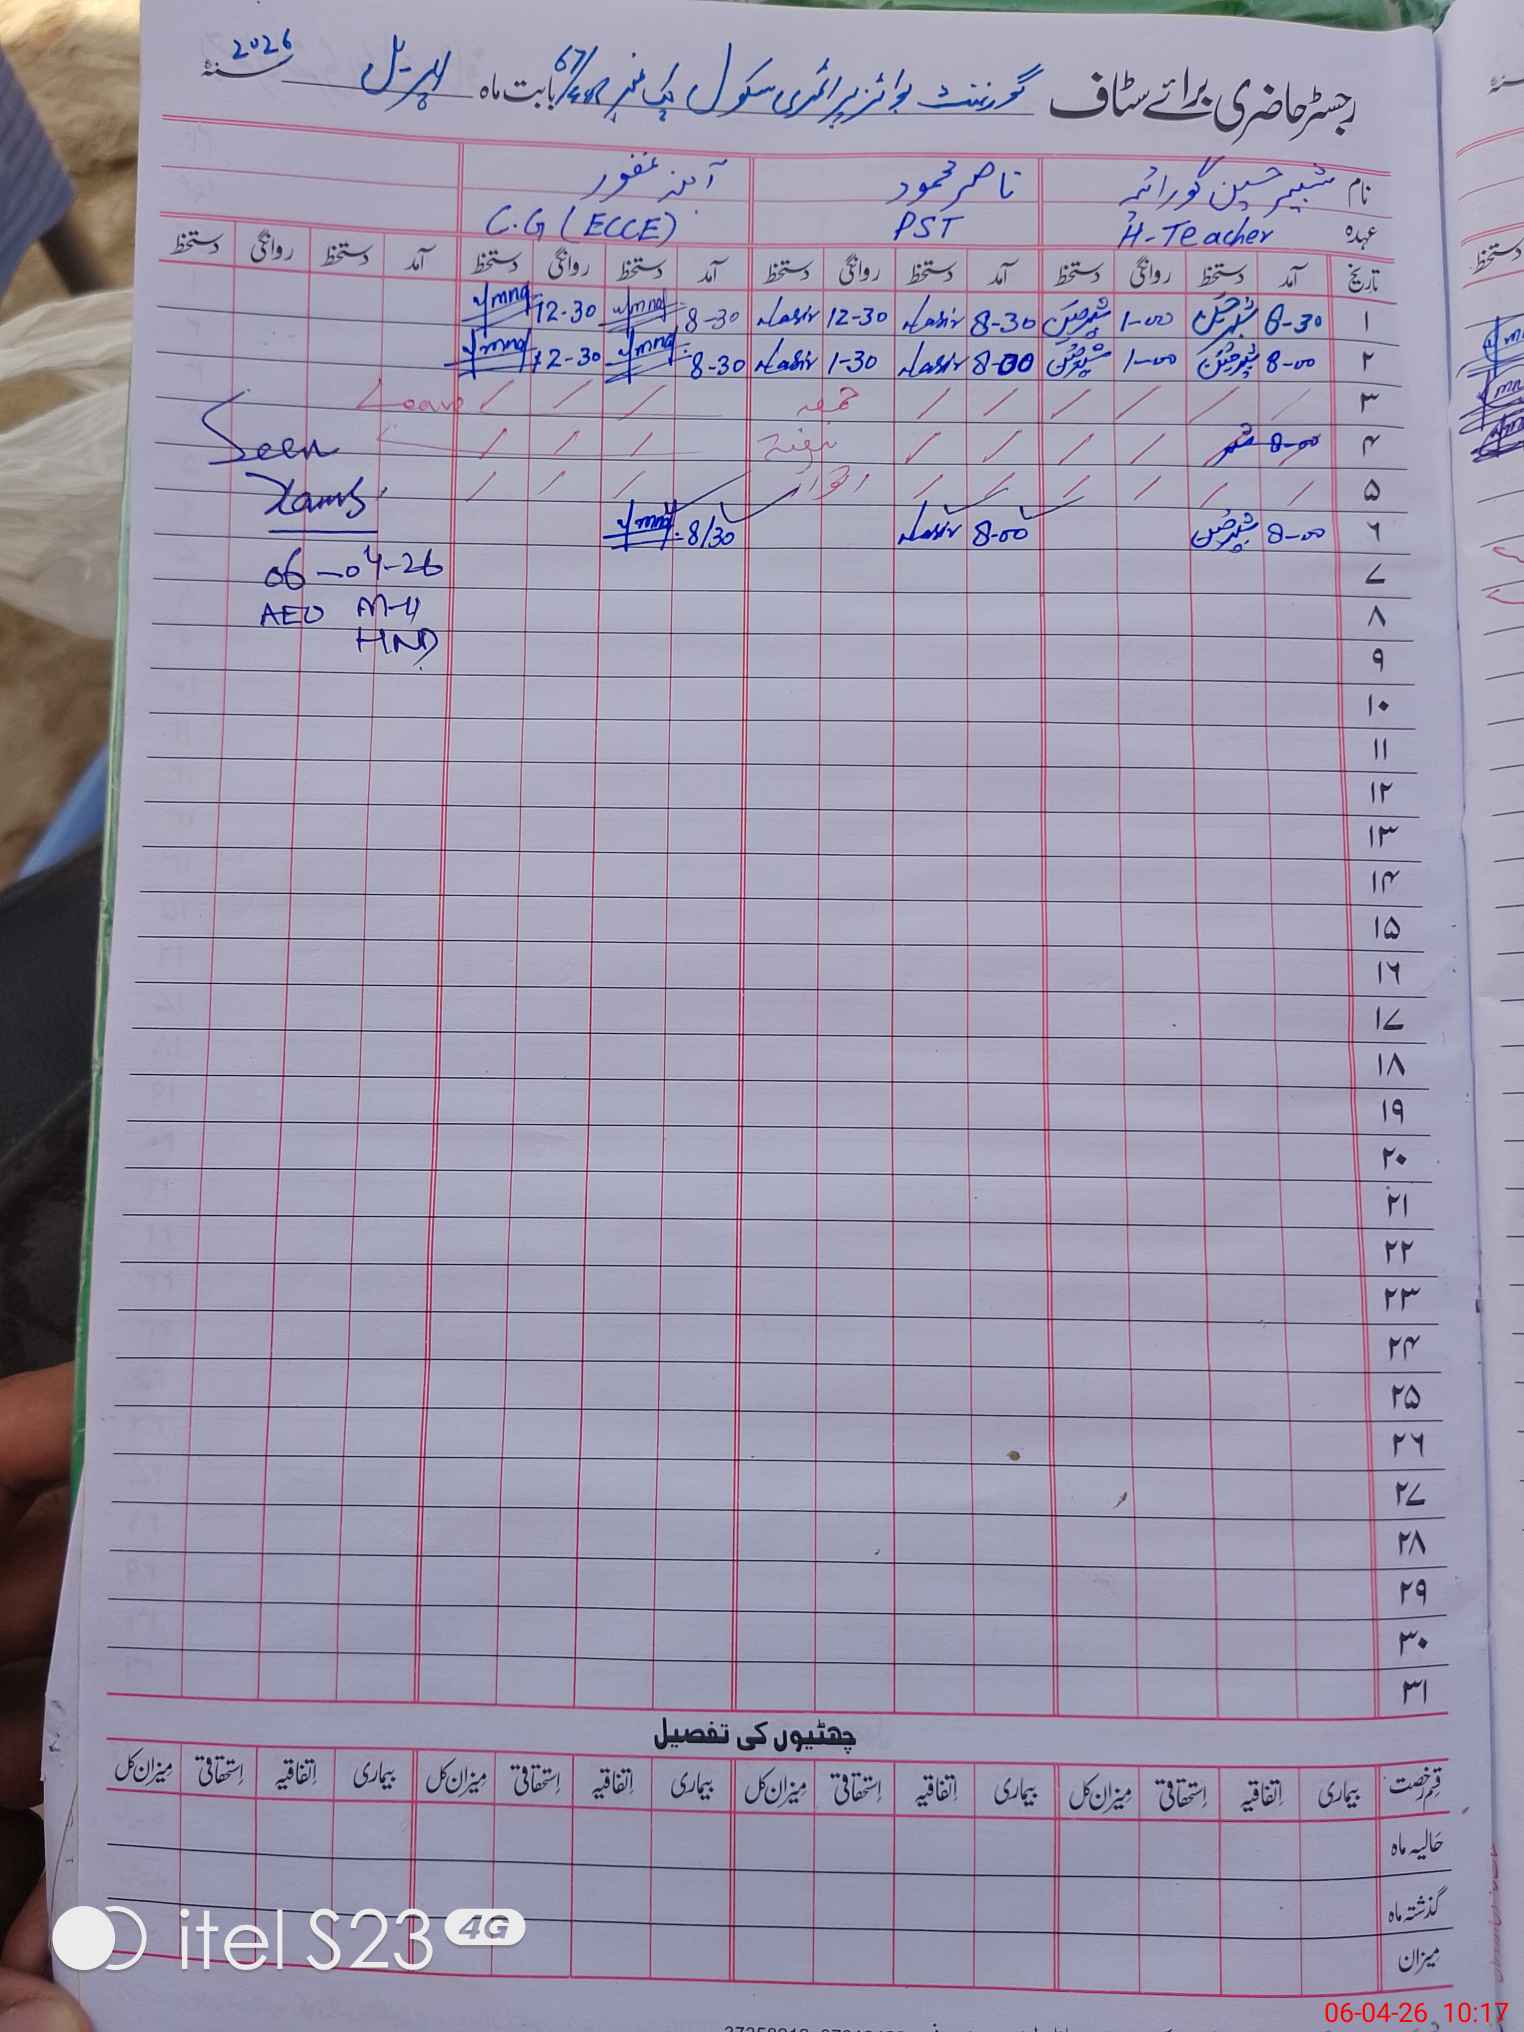 رجسٹر حاضری برائے سٹاف گورنمنٹ بوائز پرائمری سکول چک نمبر 67/ بابت ماہ اپریل سنہ 2026
نام شبیر حسین گورائیہ ناصر محمود آمنہ غفور
عہدہ H-Teacher PST C.G (ECCE)
تاریخ آمد دستخط روانگی دستخط آمد دستخط روانگی دستخط آمد دستخط روانگی دستخط آمد دستخط روانگی دستخط
۱ 8-30 شبیر حسین 1-00 شبیر حسین 8-30 Nasir 12-30 Nasir 8-30 12-30
۲ 8-00 شبیر حسین 1-00 شبیر حسین 8-00 Nasir 1-30 Nasir 8-30 12-30
۳ / / / / / / جمعہ / / / Leave
۴ 8-00 / / / / ہفتہ / / /
۵ / / / / / / اتوار / / /
۶ 8-00 شبیر حسین 8-00 Nasir 8/30
Seen
06-04-26
AEO M-4
HND
۷
۸
۹
۱۰
۱۱
۱۲
۱۳
۱۴
۱۵
۱۶
۱۷
۱۸
۱۹
۲۰
۲۱
۲۲
۲۳
۲۴
۲۵
۲۶
۲۷
۲۸
۲۹
۳۰
۳۱
چھٹیوں کی تفصیل
قسم رخصت بیماری اتفاقیہ استحقاقی میزان کل بیماری اتفاقیہ استحقاقی میزان کل بیماری اتفاقیہ استحقاقی میزان کل بیماری اتفاقیہ استحقاقی میزان کل
حالیہ ماہ
گذشتہ ماہ
میزان
itel S23 4G
06-04-26 10:17